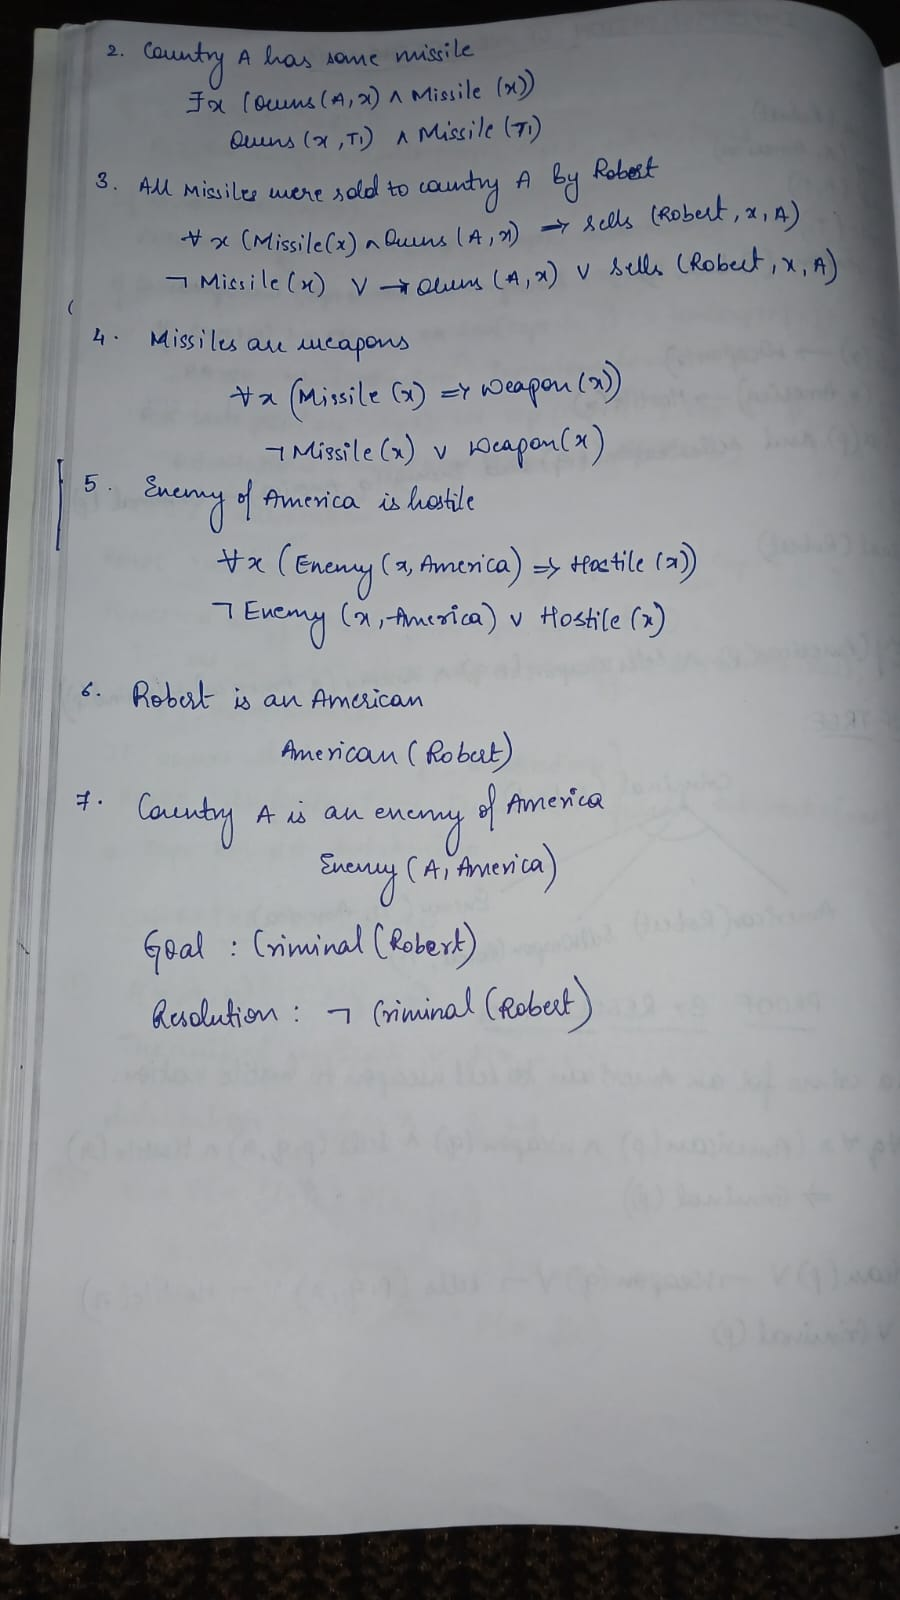 2. Country A has some missile
∃x (Owns(A,x) ∧ Missile (x))
Owns (x,T1) ∧ Missile (T1)
3. All Missiles were sold to country A by Robert
∀x (Missile(x) ∧ Owns (A,x) ⇒ Sells (Robert, x, A)
¬ Missile(x) ∨ ¬ Owns (A,x) ∨ Sells (Robert, x, A)
4. Missiles are weapons
∀x (Missile (x) ⇒ Weapon (x))
¬ Missile (x) ∨ Weapon(x)
5. Enemy of America is hostile
∀x (Enemy (x, America) ⇒ Hostile (x))
¬ Enemy (x, America) ∨ Hostile (x)
6. Robert is an American
American (Robert)
7. Country A is an enemy of America
Enemy (A, America)
Goal : Criminal (Robert)
Resolution : ¬ Criminal (Robert)